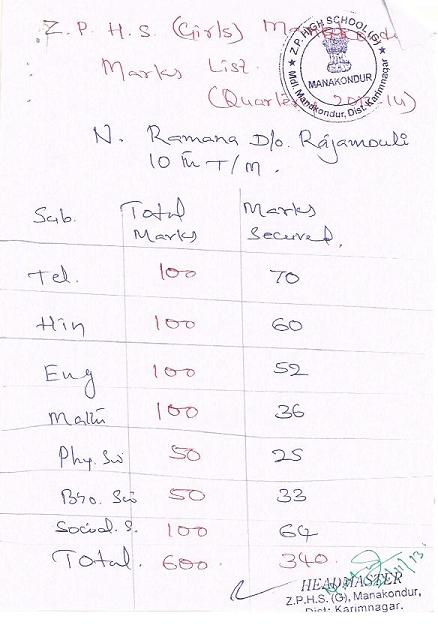 Z.P.H.S. (Girls)
Marks List.
Z.P. HIGH SCHOOL (G)
MANAKONDUR
Mdl. Manakondur, Dist. Karimnagar
N. Ramana D/o. Rajamouli
10 th T/M.
Sub. Total Marks Marks Secured.
Tel. 100 70
Hin 100 60
Eng 100 52
Math 100 36
Phy. Sci 50 25
Bio. Sci 50 33
Social. S. 100 64
Total. 600. 340.
HEADMASTER
Z.P.H.S. (G), Manakondur,
Dist: Karimnagar.